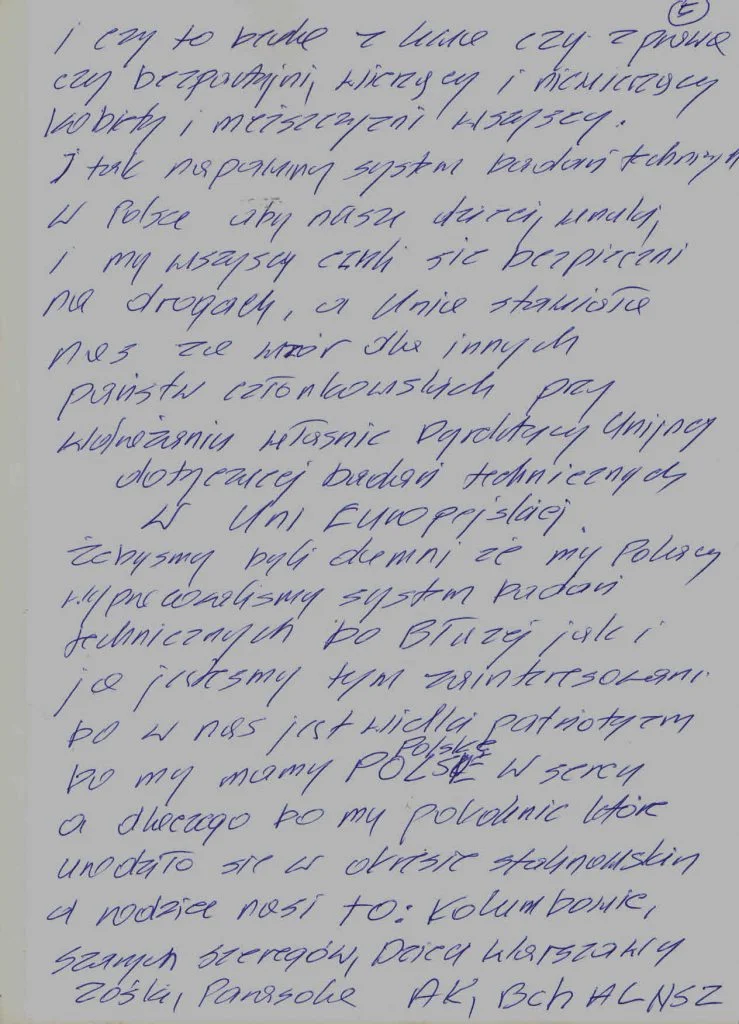 E
i czy to będzie z lewa czy z prawa
czy bezpartyjni, wierzący i niewierzący
kobiety i mężczyźni wszyscy.
I tak naprawmy system badań techniczn
w Polsce aby nasze dzieci, wnuki,
i my wszyscy czuli się bezpieczni
na drogach, a Unia stawiała
nas za wzór dla innych
państw członkowskich przy
wdrażaniu właśnie Dyrektywy Unijnej
dotyczącej badań technicznych
w Uni Europejskiej.
Żebyśmy byli dumni że my Polacy
wypracowaliśmy system badań
technicznych bo Błużej jak i
ja jesteśmy tym zainteresowani.
bo w nas jest wielki patriotyzm
bo my mamy POLSKĘ Polskę w sercu
a dlaczego bo my pokolenie które
urodziło się w okresie stalinowskim
a rodzice nasi to: Kolumbowie,
Szarych Szeregów, Dzieci Warszawy
Zośki, Parasola AK, Bch AL NSZ